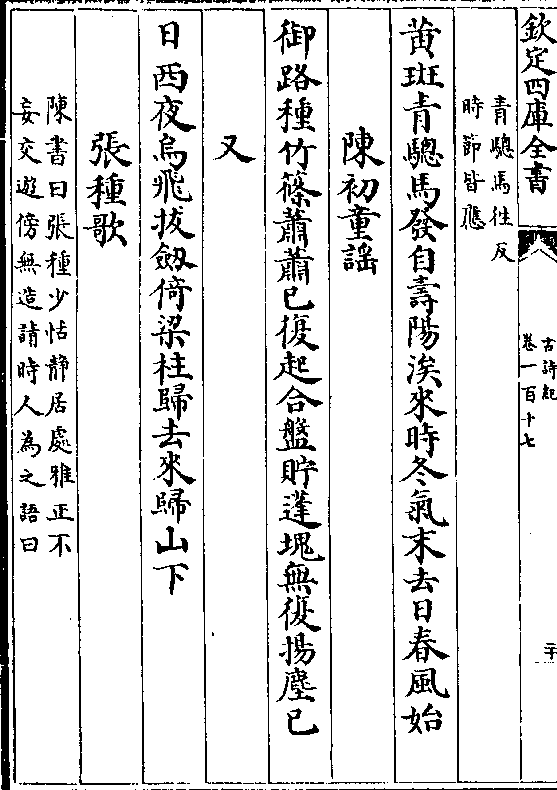 欽定四庫全書
古詩紀
卷一百十七
二十
青驄馬徃反
時節皆應
黃斑青驄馬發自壽陽涘來時冬氣末去日春風始
陳初童謡
御路種竹篠蕭蕭已復起合盤貯蓬塊無復揚塵已
又
日西夜烏飛拔劔倚梁柱歸去來歸山下
張種歌
陳書曰張種少怙静居處雅正不
妄交遊傍無造請時人為之語曰